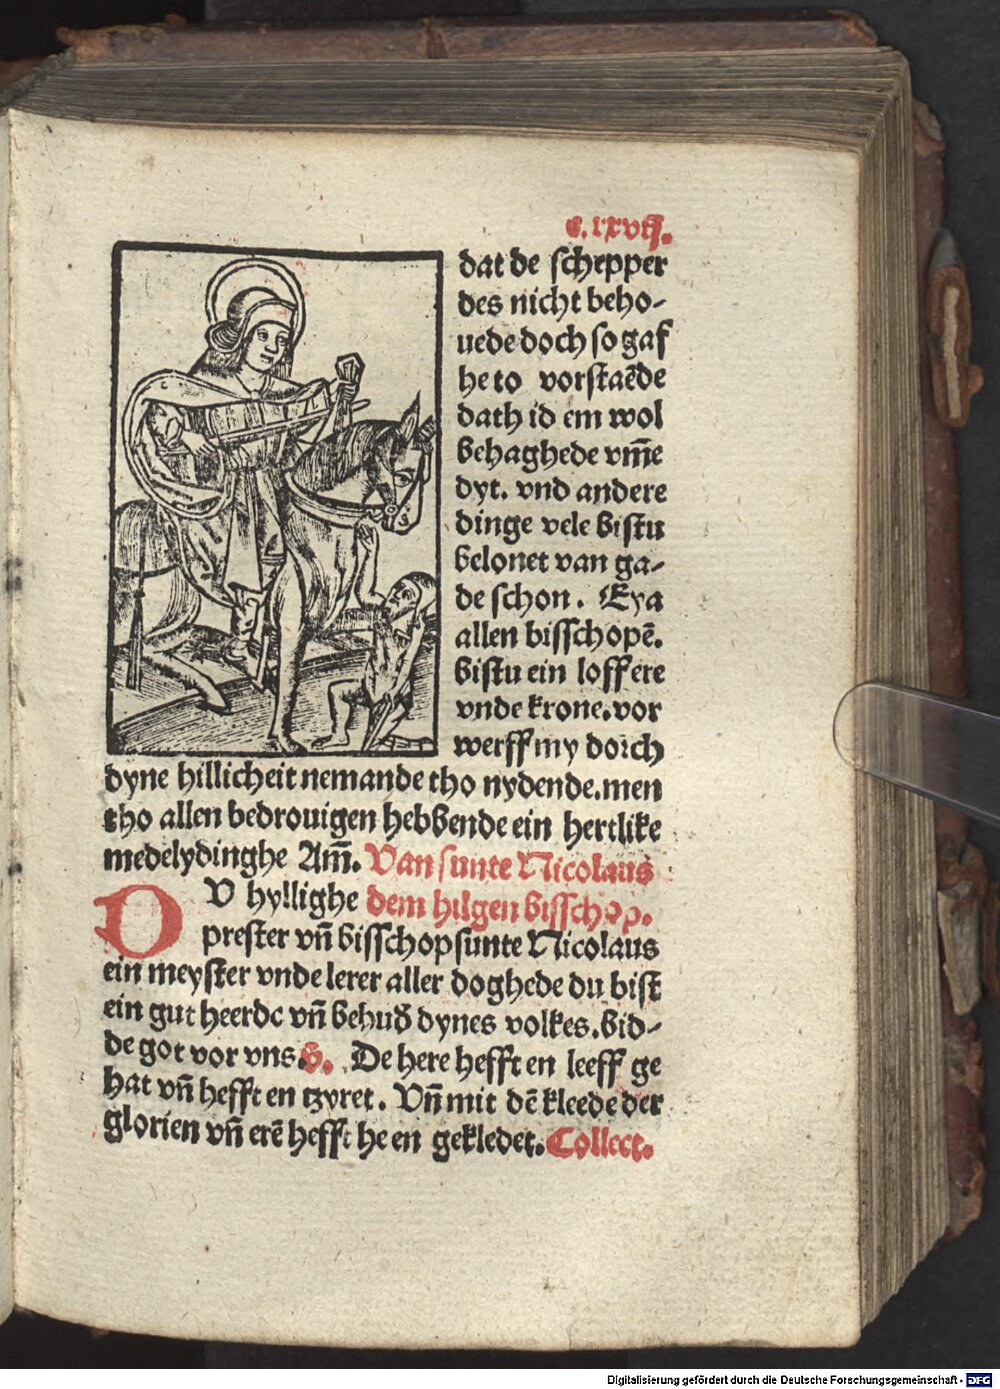 c.lxviij.
dat de schepper
des nicht beho-
uede doch so gaf
he to vorstaēde
dath id em wol
behaghede vm̄e
dyt. vnd andere
dinge vele bistu
belonet van ga-
de schon. Eya
allen bisschopē.
bistu ein loffere
vnde krone. vor
werff my dorch
dyne hillicheit nemande tho nydende. men
tho allen bedrouigen hebbende ein hertlike
medelydinghe Am̄. Van sunte Nicolaus
O V hyllighe dem hilgen bisschop.
prester vn̄ bisschop sunte Nicolaus
ein meyster vnde lerer aller doghede du bist
ein gut heerde vn̄ behud dynes volkes. bid-
de got vor vns. De here hefft en leeff ge
hat vn̄ hefft en tzyret. Vn̄ mit dē kleede der
glorien vn̄ erē hefft he en gekledet. Collect.
Digitalisierung gefördert durch die Deutsche Forschungsgemeinschaft - DFG